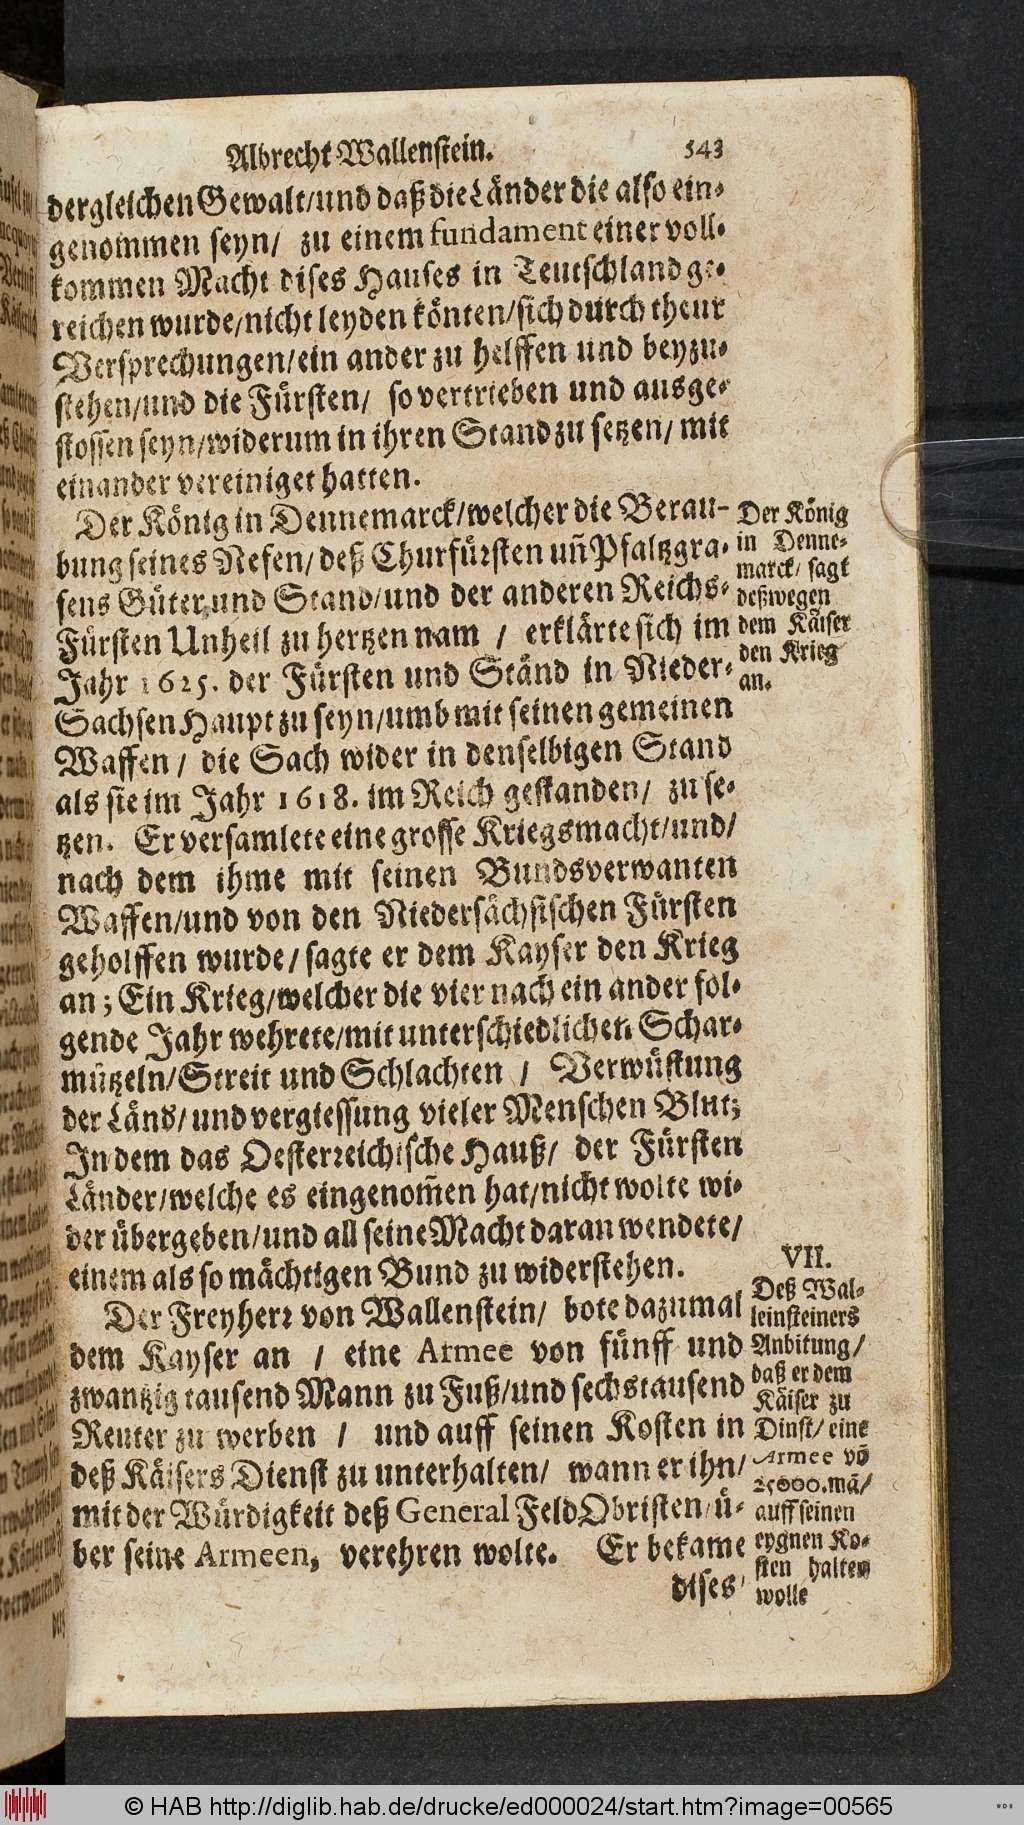 Albrecht Wallenstein. 543
dergleichen Gewalt/und daß die Länder die also ein-
genommen seyn/ zu einem fundament einer voll-
kommen Macht dises Hauses in Teutschland ge-
reichen wurde/nicht leyden könten/sich durch theur
Versprechungen/ein ander zu helffen und beyzu-
stehen/und die Fürsten/ so vertrieben und ausge-
stossen seyn/widerum in ihren Stand zu setzen/ mit
einander vereiniget hatten.
Der König in Dennemarck/welcher die Berau-
bung seines Nefen/ deß Churfürsten uñ Pfaltzgra-
fens Güter und Stand/und der anderen Reichs-
Fürsten Unheil zu hertzen nam / erklärte sich im
Jahr 1625. der Fürsten und Ständ in Nieder-
Sachsen Haupt zu seyn/umb mit seinen gemeinen
Waffen/ die Sach wider in denselbigen Stand
als sie im Jahr 1618. im Reich gestanden/ zu se-
tzen. Er versamlete eine grosse Kriegsmacht/und/
nach dem ihme mit seinen Bundsverwanten
Waffen/und von den Niedersächsischen Fürsten
geholffen wurde/sagte er dem Kayser den Krieg
an; Ein Krieg/welcher die vier nach ein ander fol-
gende Jahr wehrete/mit unterschiedlichen Schar-
mützeln/Streit und Schlachten / Verwüstung
der Länd/ und vergiessung vieler Menschen Blut;
In dem das Oesterreichische Hauß/ der Fürsten
Länder/welche es eingenom̃en hat/nicht wolte wi-
der übergeben/und all seine Macht daran wendete/
einem als so mächtigen Bund zu widerstehen.
Der Freyherr von Wallenstein/ bote dazumal
dem Kayser an / eine Armee von fünff und
zwantzig tausend Mann zu Fuß/und sechstausend
Reuter zu werben / und auff seinen Kosten in
deß Käisers Dienst zu unterhalten/ wann er ihn/
mit der Würdigkeit deß General FeldObristen/ü-
ber seine Armeen, verehren wolte. Er bekame
dises
Der König
in Denne-
marck/ sagt
deßwegen
dem Käiser
den Krieg
an.
VII.
Deß Wal-
leinsteiners
Anbitung/
daß er dem
Käiser zu
Dinst/ eine
Armee võ
25000.mã/
auff seinen
eygnen Ko-
sten halten
wolle
© HAB http://diglib.hab.de/drucke/ed000024/start.htm?image=00565